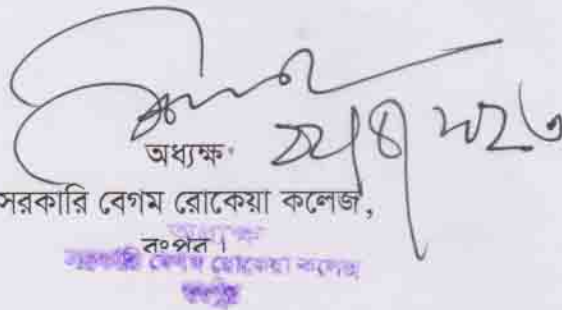 অধ্যক্ষ
সরকারি বেগম রোকেয়া কলেজ,
রংপুর।
অধ্যক্ষ
সরকারি বেগম রোকেয়া কলেজ
রংপুর